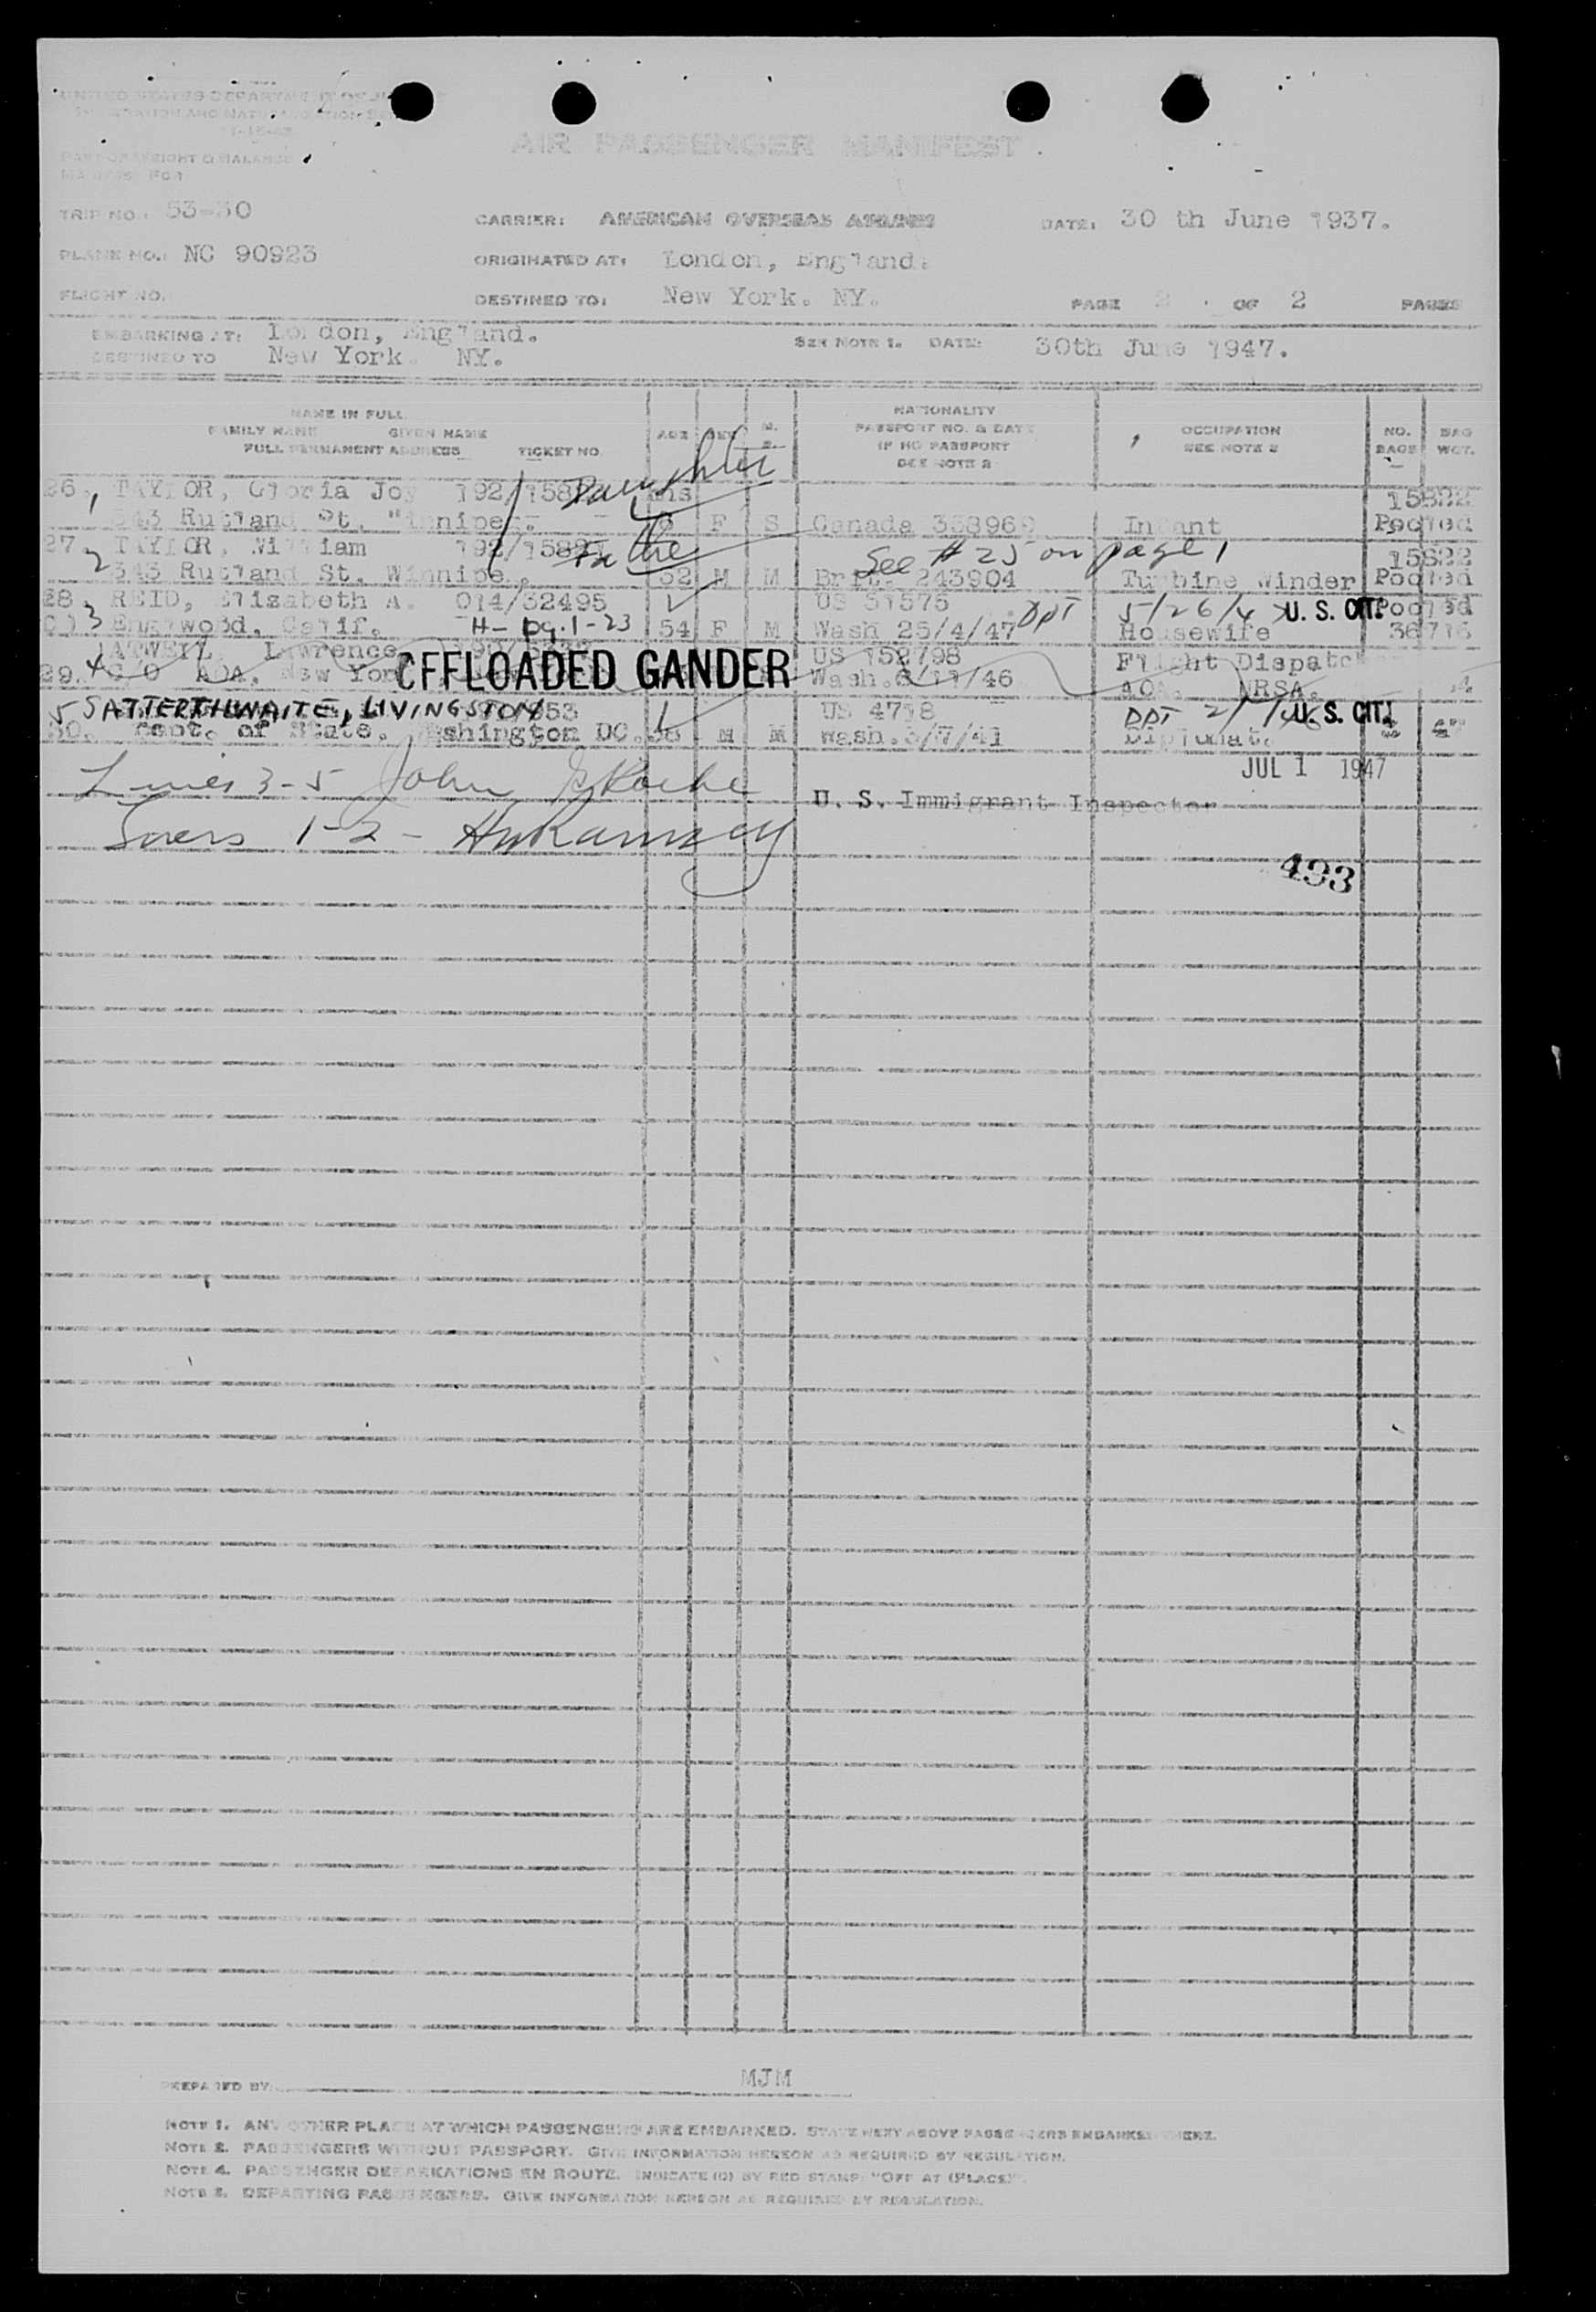 UNITED STATES DEPARTMENT OF
IMMIGRATION AND NATURALIZATION
AIR PASSENGER MANIFEST
TRIP NO.: 53-30
CARRIER: AMERICAN OVERSEAS AIRLINES
DATE: 30 th June 1937.
PLANE NO.: NC 90923
ORIGINATED AT: London, England.
FLIGHT NO.
DESTINED TO: New York. NY.
PAGE 2 OF 2 PAGES
EMBARKING AT: London, England.
SEE NOTE 1. DATE: 30th June 1947.
DESTINED TO New York. NY.
NAME IN FULL
FAMILY NAME GIVEN NAME
FULL PERMANENT ADDRESS TICKET NO.
AGE SEX M. S.
NATIONALITY
PASSPORT NO. & DATE
IF NO PASSPORT
SEE NOTE 2
OCCUPATION
SEE NOTE 5
NO. BAGS
BAG WGT.
26. 1 TAYLOR, Gloria Joy Daughter 15822
343 Rutland St. Winnipeg. F S Canada 358969 Infant Pooled
27. 2 TAYLOR, William Father See #25 on page 1 15822
343 Rutland St. Winnipeg. 52 M M Brit. 243904 Turbine Winder Pooled
28. 3 REID, Elizabeth A. 014/32495 US 51575 DPT 5/26/4 U. S. CIT. Pooled
Englwood, Calif. H- pg. 1-23 54 F M Wash 25/4/47 Housewife 36716
4 ATWEIL Lawrence US 152798 Flight Dispatch
29. C/O AOA, New York OFFLOADED GANDER Wash. 6/11/46 AOA. NRSA.
5 SATTERTHWAITE, LIVINGSTON US 4718 DPT U. S. CIT.
30. Dept. of State. Washington DC. 38 M M Wash. 3/7/41 Diplomat.
JUL 1 1947
Lines 3-5 John
U. S. Immigrant Inspector
Lines 1-2 - HW Ramsey
493
PREPARED BY MJM
NOTE 1. ANY OTHER PLACE AT WHICH PASSENGERS ARE EMBARKED. STATE NEXT ABOVE PASSENGERS EMBARKED THERE.
NOTE 2. PASSENGERS WITHOUT PASSPORT. GIVE INFORMATION HEREON AS REQUIRED BY REGULATION.
NOTE 4. PASSENGER DEBARKATIONS EN ROUTE. INDICATE (D) BY RED STAMP "OFF AT (PLACE)".
NOTE 5. DEPARTING PASSENGERS. GIVE INFORMATION HEREON AS REQUIRED BY REGULATION.